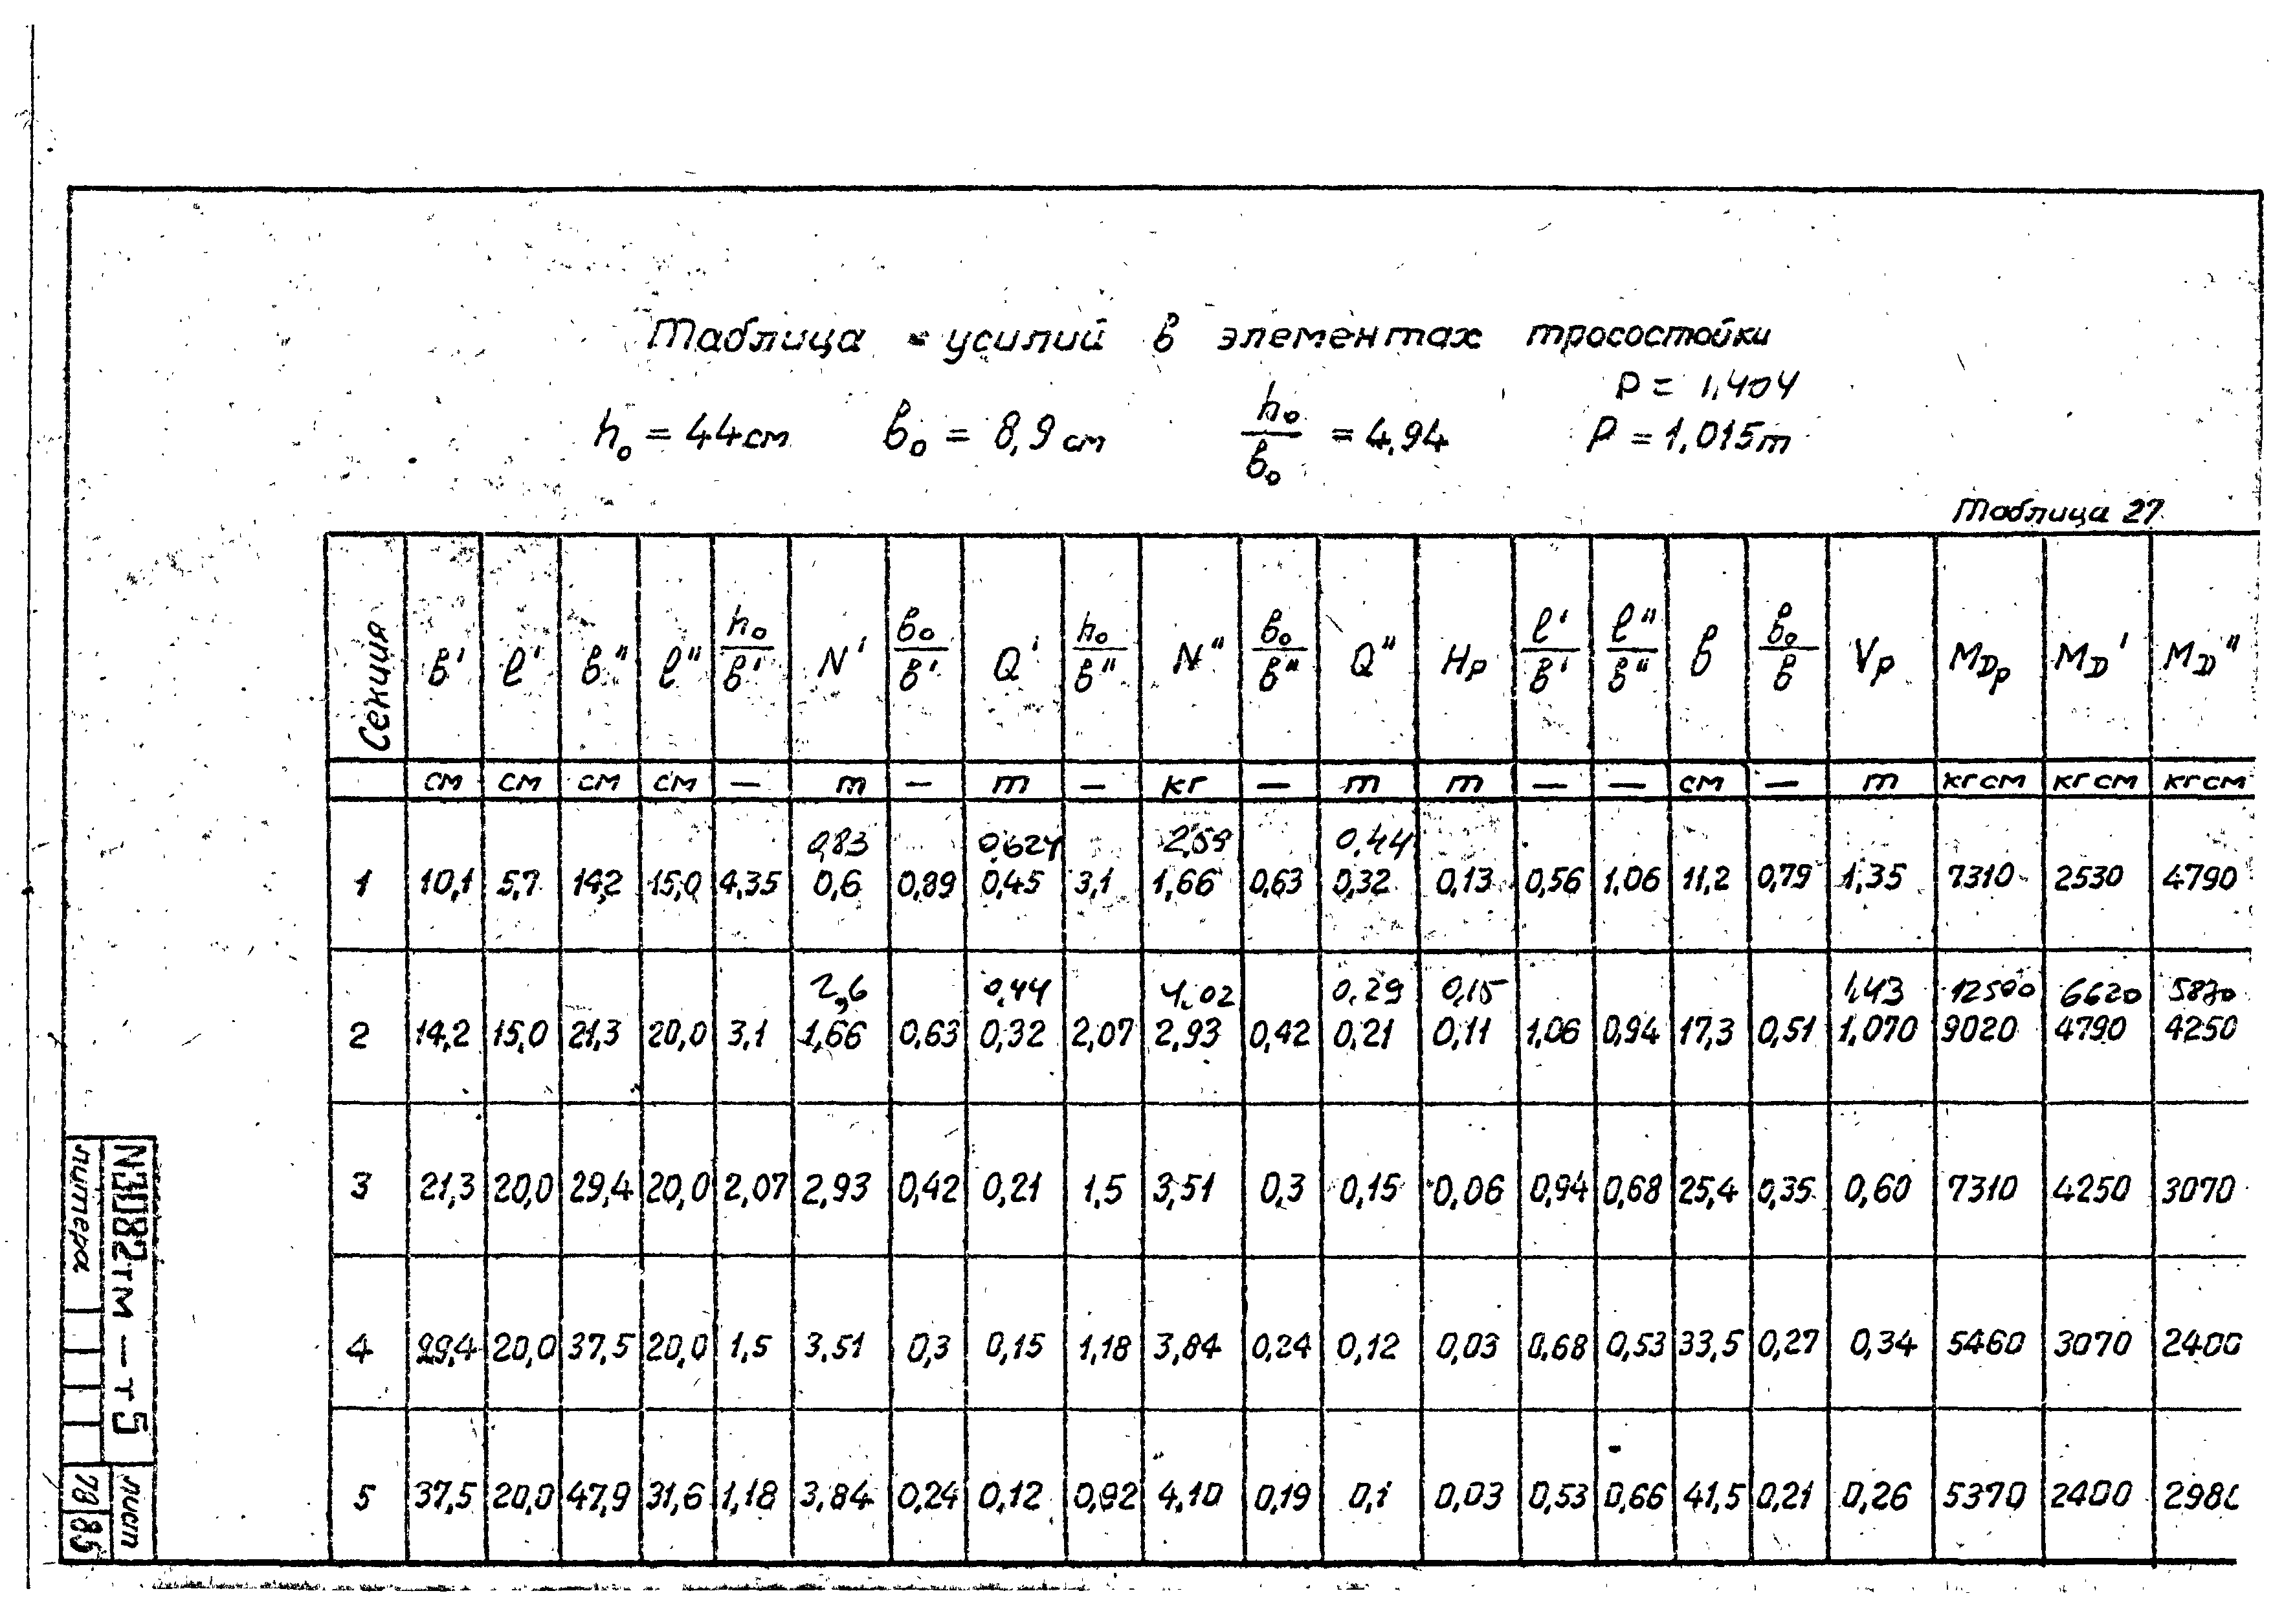 Таблица усилий в элементах тросостойки
P = 1,404
h₀ = 44 см в₀ = 8,9 см h₀/в₀ = 4,94 P = 1,015т
Таблица 27
Секция в' ℓ' в" ℓ" h₀/в' N' в₀/в' Q' h₀/в" N" в₀/в" Q" Hp ℓ'/в' ℓ"/в" в в₀/в Vp MDp MD' MD"
см см см см — т — т — кг — т т — — см — т кгсм кгсм кгсм
0,83 0,624 2,59 0,44
1 10,1 5,7 14,2 15,0 4,35 0,6 0,89 0,45 3,1 1,66 0,63 0,32 0,13 0,56 1,06 11,2 0,79 1,35 7310 2530 4790
2,6 0,44 4,02 0,29 0,15 1,43 12500 6620 5870
2 14,2 15,0 21,3 20,0 3,1 1,66 0,63 0,32 2,07 2,93 0,42 0,21 0,11 1,06 0,94 17,3 0,51 1,070 9020 4790 4250
3 21,3 20,0 29,4 20,0 2,07 2,93 0,42 0,21 1,5 3,51 0,3 0,15 0,06 0,94 0,68 25,4 0,35 0,60 7310 4250 3070
4 29,4 20,0 37,5 20,0 1,5 3,51 0,3 0,15 1,18 3,84 0,24 0,12 0,03 0,68 0,53 33,5 0,27 0,34 5460 3070 2400
5 37,5 20,0 47,9 31,6 1,18 3,84 0,24 0,12 0,92 4,10 0,19 0,1 0,03 0,53 0,66 41,5 0,21 0,26 5370 2400 298
N3082тм — т5
лист
литера
78 85